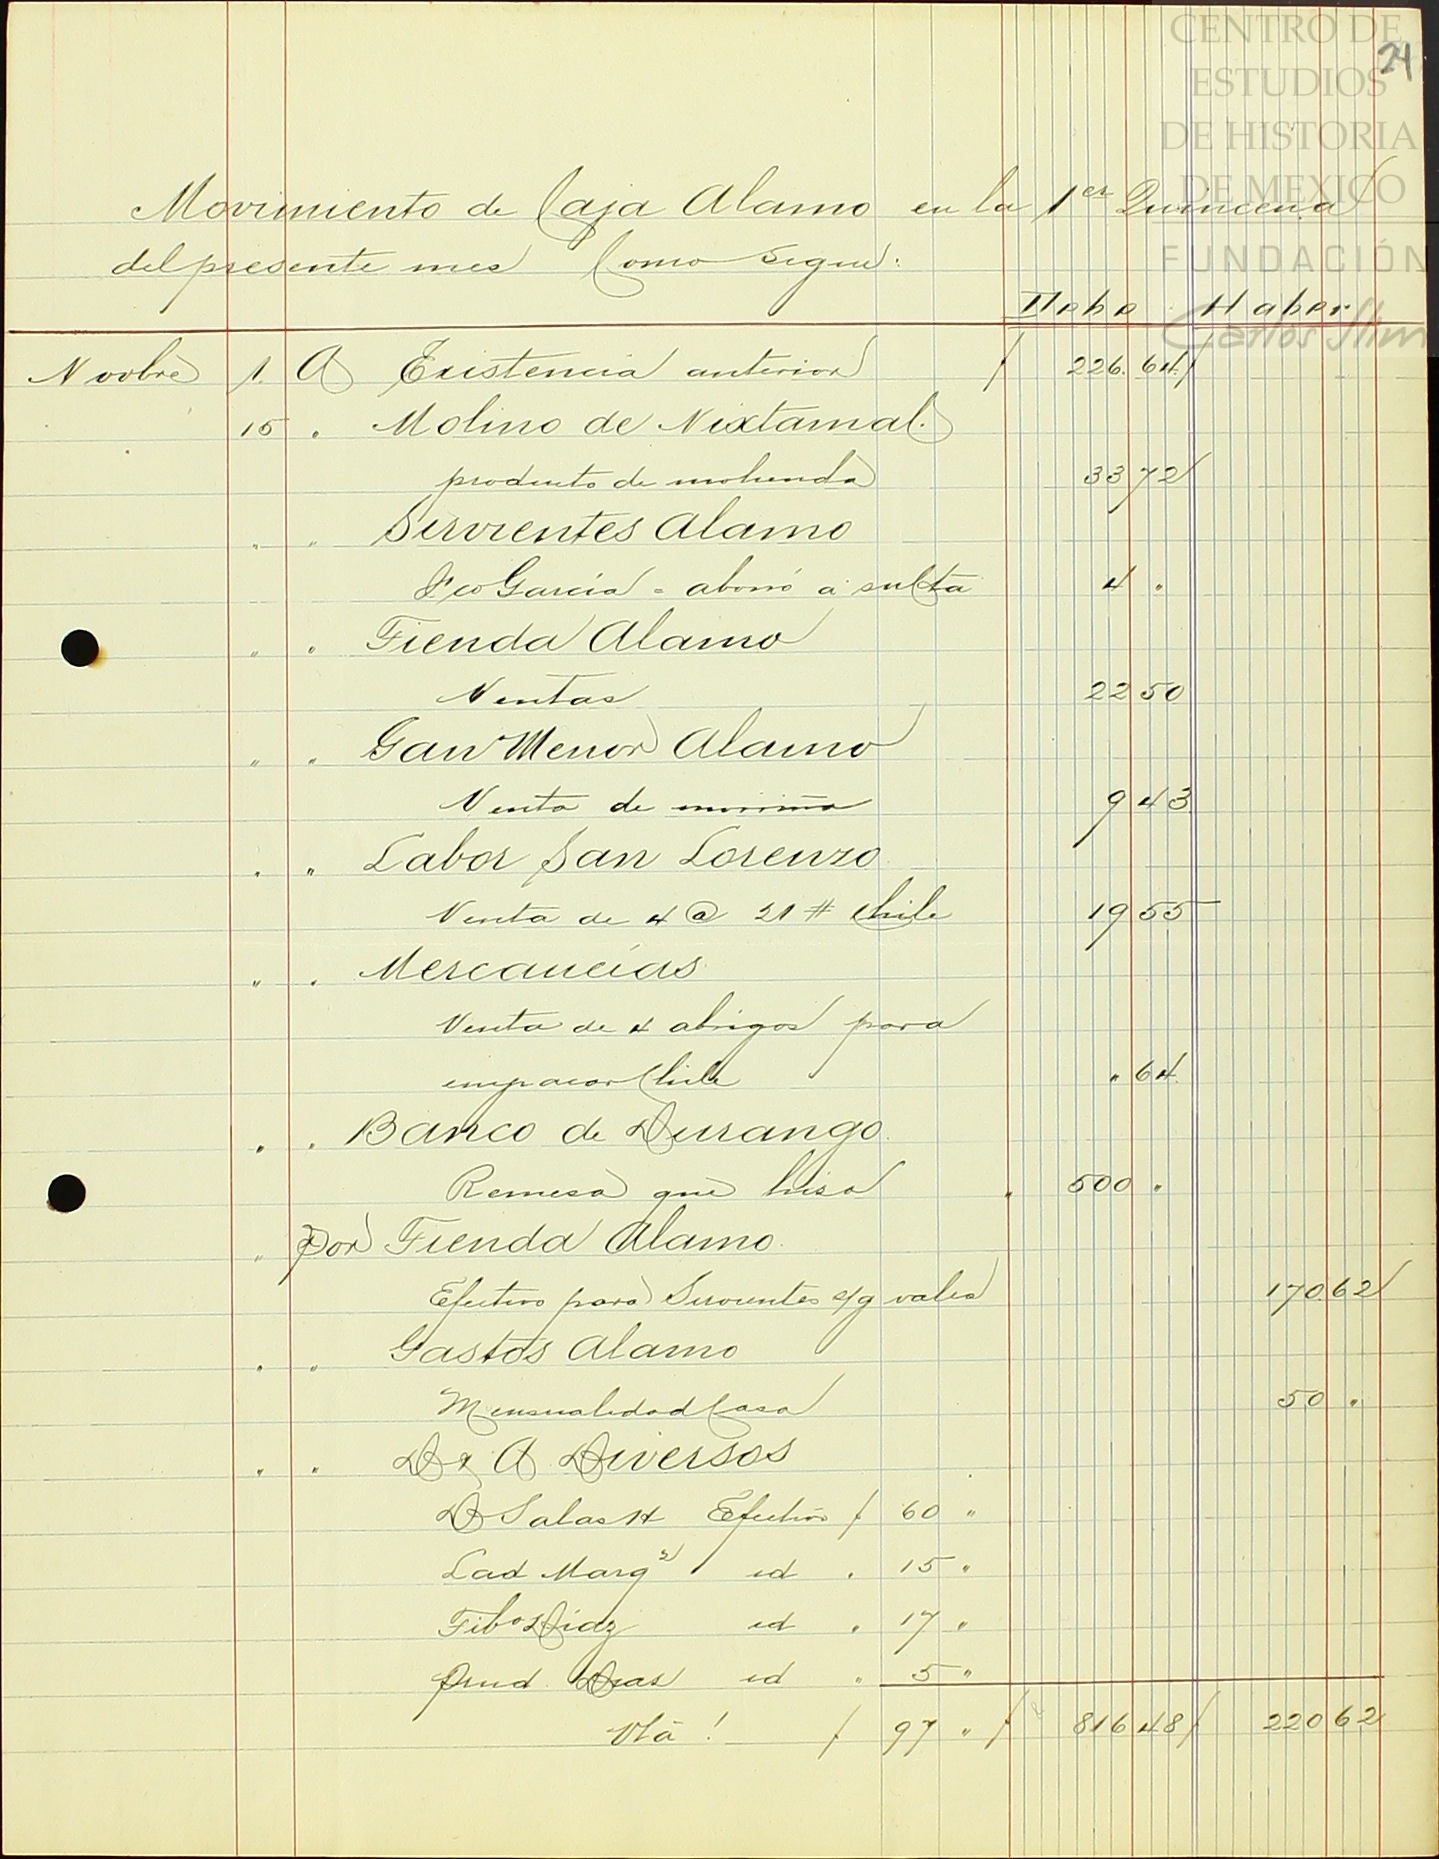 CENTRO DE
ESTUDIOS
DE HISTORIA
DE MEXICO
FUNDACIÓN
Carlos Slim
24
Movimiento de Caja Alamo en la 1er Quincena
del presente mes Como sigue:
Debe Haber
Novbre 1. A Existencia anterior / 226.64/
15 . Molino de Nixtamal.
producto de molienda 33 72/
" " Sirvientes Alamo
Fco García = abonó a su Cta 4 "
" " Tienda Alamo
Ventas 22 50
" " Gan Menor Alamo
Venta de 9 43
" " Labor San Lorenzo
Venta de 4 @ 21 # Chile 19 55
" " Mercancías
Venta de 4 abrigos para
empacar Chile " 64
" " Banco de Durango
Remesa que hiso " 500 "
" por Tienda Alamo
Efectivo para Sirvientes s/g vales 170.62/
" " Gastos Alamo
Mensualidad Casa 50 "
" " D. & A. Diversos
D Salas H Efectivo / 60 "
Lad Marqz id " 15 "
Tibo Díaz id " 17 "
Prud. Dias id " 5 "
Vta ! / 97 " / 816 48/ 220 62